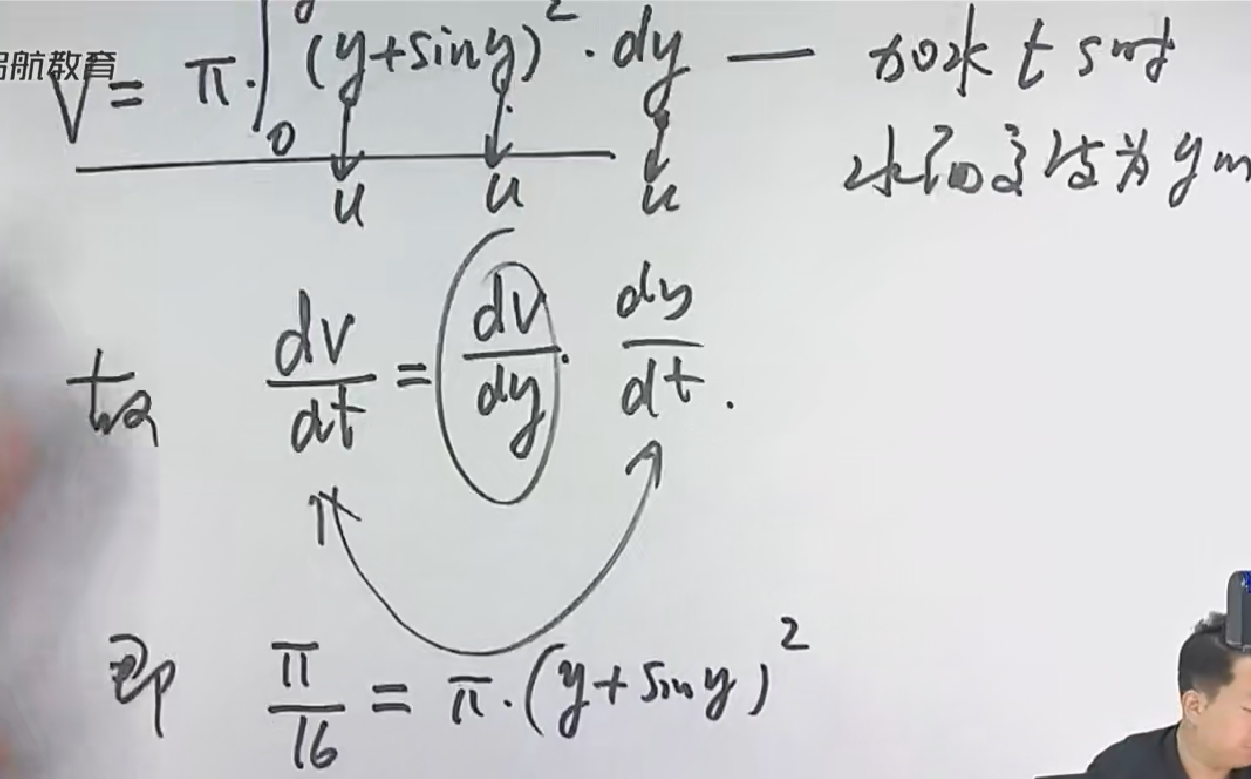 启航教育
V = π·∫₀^y (y+siny)²·dy — 加水 t s时
水面高度为 y m
u u u
故 dV/dt = dV/dy · dy/dt.
即 π/16 = π·(y+siny)²